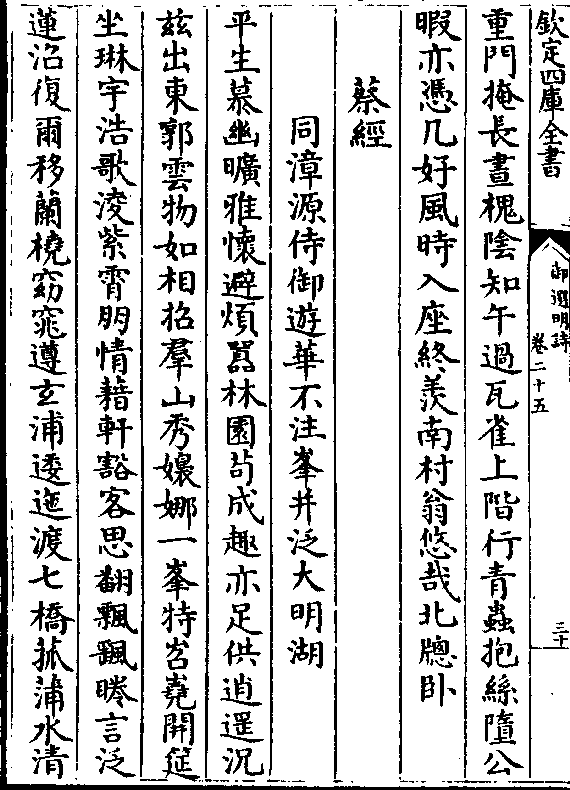 欽定四庫全書
御選明詩
卷二十五
三十
重門掩長晝槐陰知午過瓦雀上階行青蟲抱絲墮公
暇亦憑几好風時入座終羨南村翁悠哉北牕卧
蔡經
同漳源侍御遊華不注峯并泛大明湖
平生慕幽曠雅懷避煩嚻林園茍成趣亦足供逍遥況
兹出東郭雲物如相招羣山秀嬝娜一峯特岧嶤開筵
坐琳宇浩歌淩紫霄朋情藉軒豁客思翻飄飖睠言泛
蓮沿復爾移蘭橈窈窕遵玄浦逶迤渡七橋菰蒲水清